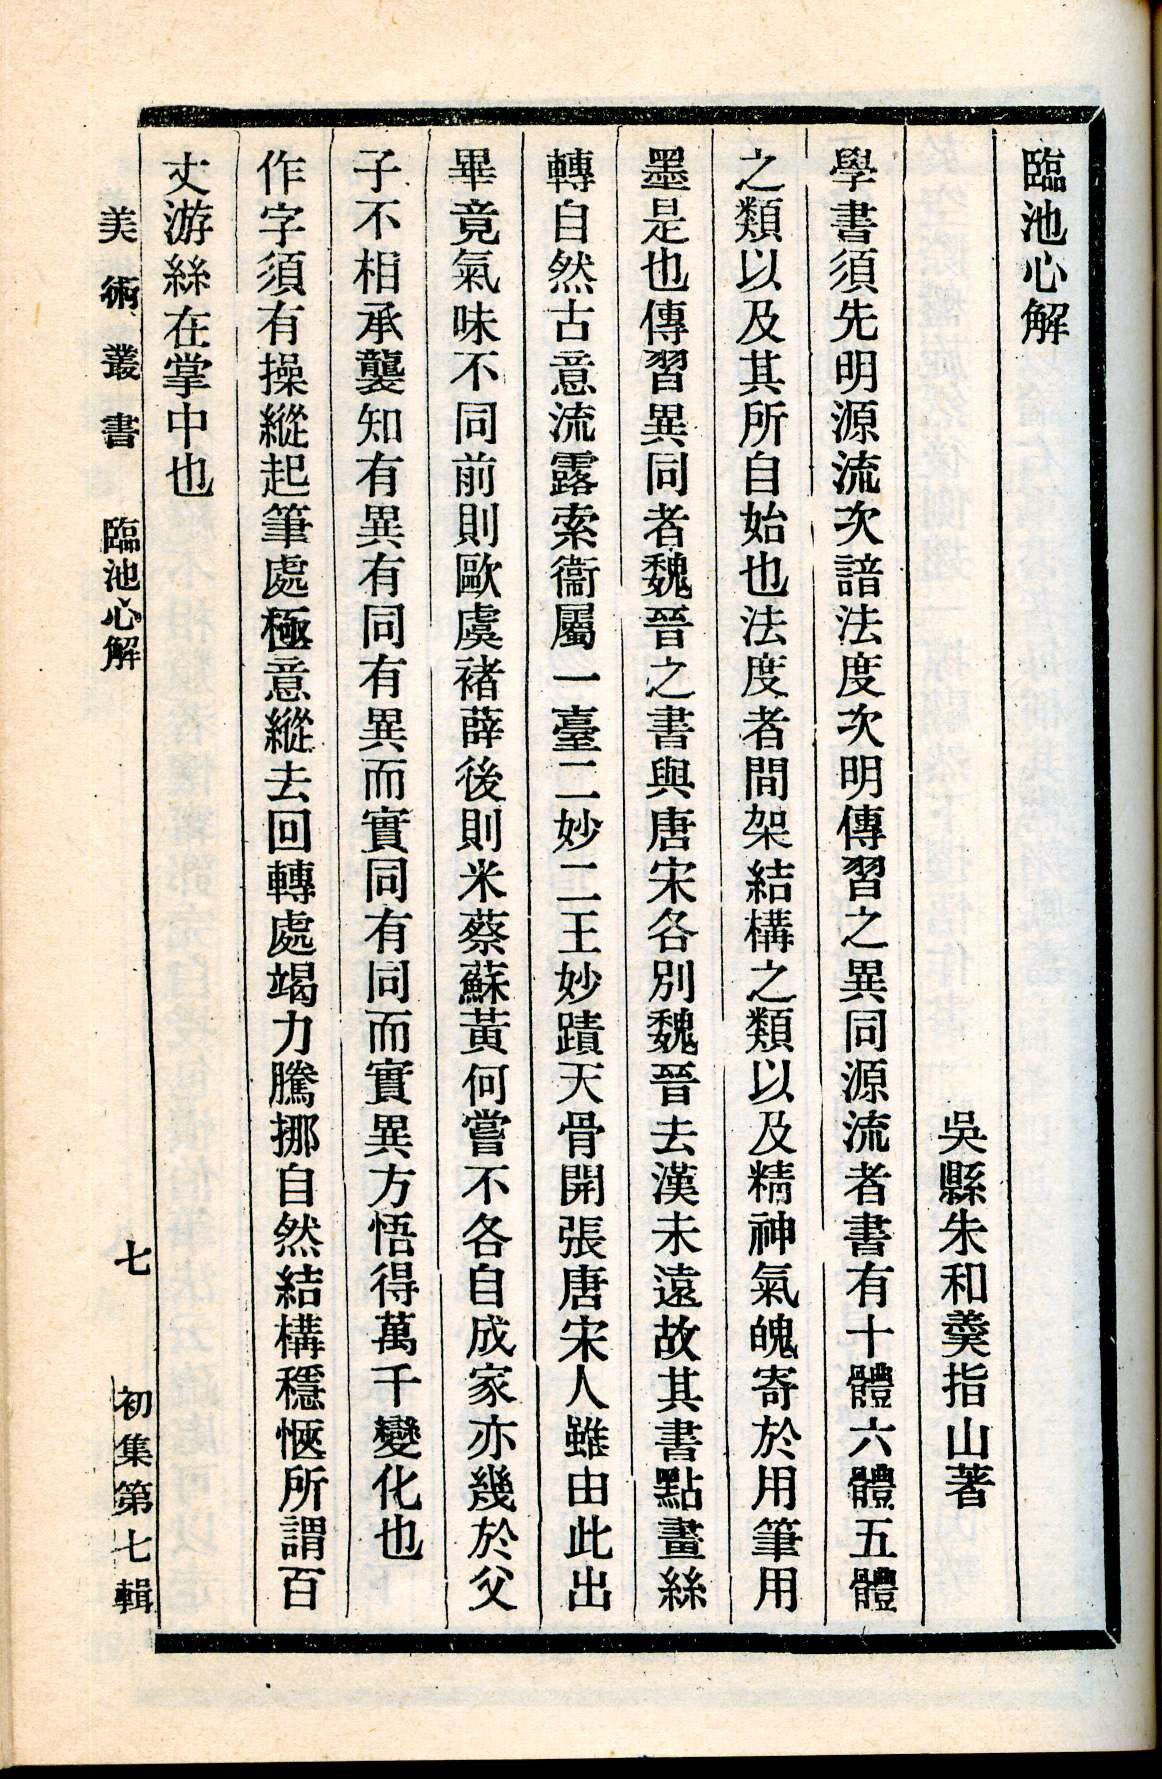 臨池心解
吳縣朱和羹指山著
學書須先明源流次諳法度次明傳習之異同源流者書有十體六體五體
之類以及其所自始也法度者間架結構之類以及精神氣魄寄於用筆用
墨是也傳習異同者魏晉之書與唐宋各別魏晉去漢未遠故其書點畫絲
轉自然古意流露索衞屬一臺二妙二王妙蹟天骨開張唐宋人雖由此出
畢竟氣味不同前則歐虞褚薛後則米蔡蘇黃何嘗不各自成家亦幾於父
子不相承襲知有異有同有異而實同有同而實異方悟得萬千變化也
作字須有操縱起筆處極意縱去回轉處竭力騰挪自然結構穩愜所謂百
丈游絲在掌中也
美術叢書 臨池心解 七 初集第七輯